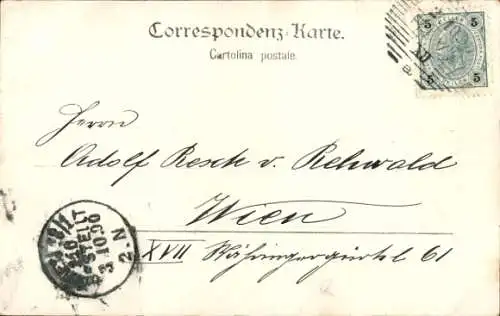 Correspondenz-Karte.
Cartolina postale.
5 5
5 5
Herrn
Adolf Resch v. Rehwald
Wien
XVII Währingergürtel 61
BESTELLT
N. 2